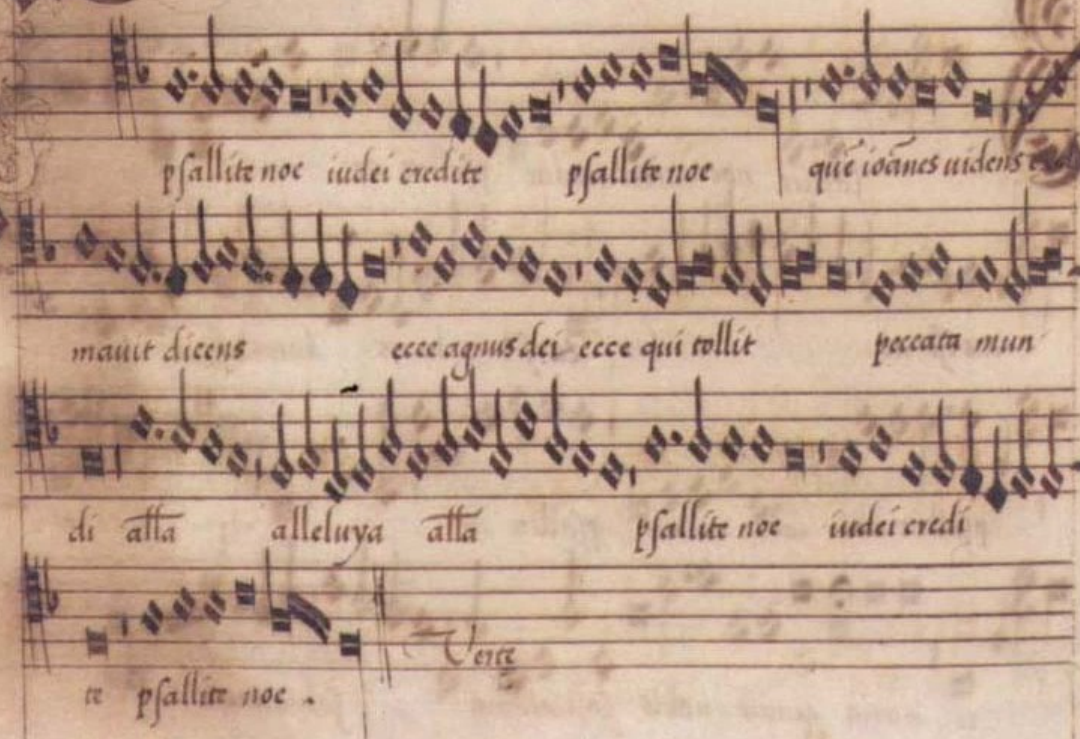 psallite noe iudei credite psallite noe quē ioānes uidens
mauit dicens ecce agnus dei ecce qui tollit peccata mun
di alła alleluya alła psallite noe iudei credi
te psallite noe . Verte